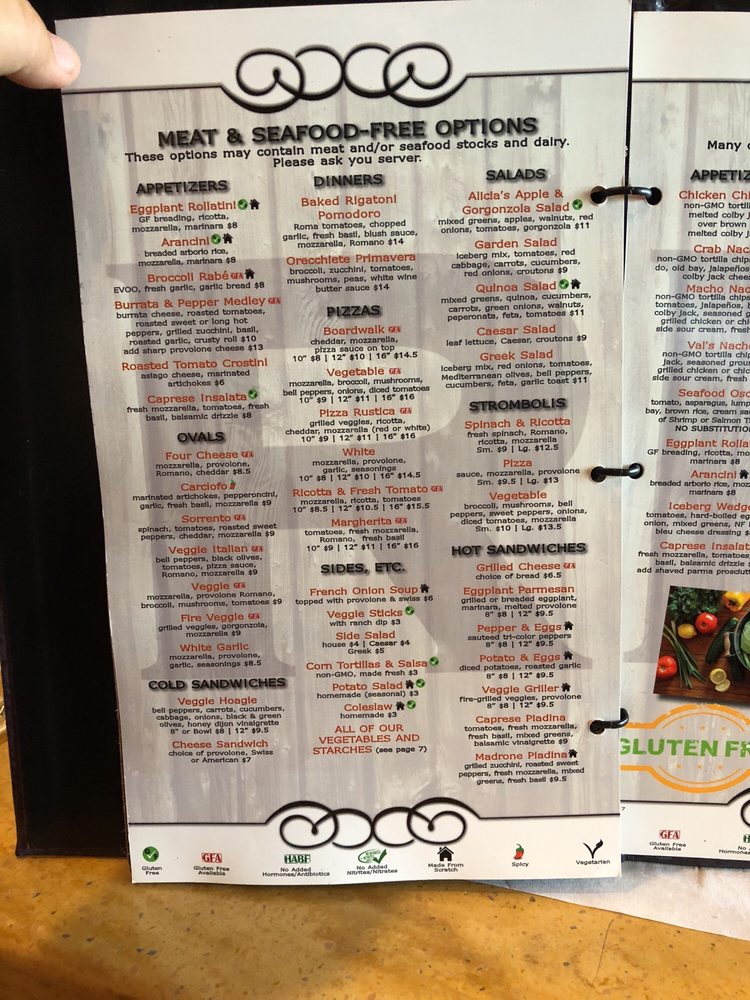 MEAT & SEAFOOD-FREE OPTIONS
These options may contain meat and/or seafood stocks and dairy.
Please ask you server.
APPETIZERS
Eggplant Rollatini
GF breading, ricotta,
mozzarella, marinara $8
Arancini
breaded arborio rice,
mozzarella, marinara $8
Broccoli Rabé GFA
EVOO, fresh garlic, garlic bread $8
Burrata & Pepper Medley GFA
burrata cheese, roasted tomatoes,
roasted sweet or long hot
peppers, grilled zucchini, basil,
roasted garlic, crusty roll $10
add sharp provolone cheese $13
Roasted Tomato Crostini
asiago cheese, marinated
artichokes $6
Caprese Insalata
fresh mozzarella, tomatoes, fresh
basil, balsamic drizzle $8
OVALS
Four Cheese GFA
mozzarella, provolone,
Romano, cheddar $8.5
Carciofo
marinated artichokes, pepperoncini,
garlic, fresh basil, mozzarella $9
Sorrento GFA
spinach, tomatoes, roasted sweet
peppers, cheddar, mozzarella $9
Veggie Italian GFA
bell peppers, black olives,
tomatoes, pizza sauce,
Romano, mozzarella $9
Veggie GFA
mozzarella, provolone Romano,
broccoli, mushrooms, tomatoes $9
Fire Veggie GFA
grilled veggies, gorgonzola,
mozzarella $9
White Garlic
mozzarella, provolone,
garlic, seasonings $8.5
COLD SANDWICHES
Veggie Hoagie
bell peppers, carrots, cucumbers,
cabbage, onions, black & green
olives, honey dijon vinaigrette
8" or Bowl $8 | 12" $9.5
Cheese Sandwich
choice of provolone, Swiss
or American $7
DINNERS
Baked Rigatoni
Pomodoro
Roma tomatoes, chopped
garlic, fresh basil, blush sauce,
mozzarella, Romano $14
Orecchiete Primavera
broccoli, zucchini, tomatoes,
mushrooms, peas, white wine
butter sauce $14
PIZZAS
Boardwalk GFA
cheddar, mozzarella,
pizza sauce on top
10" $8 | 12" $10 | 16" $14.5
Vegetable GFA
mozzarella, broccoli, mushrooms,
bell peppers, onions, diced tomatoes
10" $9 | 12" $11 | 16" $16
Pizza Rustica GFA
grilled veggies, ricotta,
cheddar, mozzarella (red or white)
10" $9 | 12" $11 | 16" $16
White
mozzarella, provolone,
garlic, seasonings
10" $8 | 12" $10 | 16" $14.5
Ricotta & Fresh Tomato GFA
mozzarella, ricotta, tomatoes
10" $8.5 | 12" $10.5 | 16" $15.5
Margherita GFA
tomatoes, fresh mozzarella,
Romano, fresh basil
10" $9 | 12" $11 | 16" $16
SIDES, ETC.
French Onion Soup
topped with provolone & swiss $6
Veggie Sticks
with ranch dip $3
Side Salad
house $4 | Caesar $4
Greek $5
Corn Tortillas & Salsa
non-GMO, made fresh $3
Potato Salad
homemade (seasonal) $3
Coleslaw
homemade $3
ALL OF OUR
VEGETABLES AND
STARCHES (see page 7)
SALADS
Alicia's Apple &
Gorgonzola Salad
mixed greens, apples, walnuts, red
onions, tomatoes, gorgonzola $11
Garden Salad
iceberg mix, tomatoes, red
cabbage, carrots, cucumbers,
red onions, croutons $9
Quinoa Salad
mixed greens, quinoa, cucumbers,
carrots, green onions, walnuts,
peperonata, feta, tomatoes $11
Caesar Salad
leaf lettuce, Caesar, croutons $9
Greek Salad
iceberg mix, red onions, tomatoes,
Mediterranean olives, bell peppers,
cucumbers, feta, garlic toast $11
STROMBOLIS
Spinach & Ricotta
fresh spinach, Romano,
ricotta, mozzarella
Sm. $9 | Lg. $12.5
Pizza
sauce, mozzarella, provolone
Sm. $9.5 | Lg. $13
Vegetable
broccoli, mushrooms, bell
peppers, sweet peppers, onions,
diced tomatoes, mozzarella
Sm. $10 | Lg. $13.5
HOT SANDWICHES
Grilled Cheese GFA
choice of bread $6.5
Eggplant Parmesan
grilled or breaded eggplant,
marinara, melted provolone
8" $8 | 12" $9.5
Pepper & Eggs
sauteed tri-color peppers
8" $8 | 12" $9.5
Potato & Eggs
diced potatoes, roasted garlic
8" $8 | 12" $9.5
Veggie Griller
fire-grilled veggies, provolone
8" $8 | 12" $9.5
Caprese Piadina
tomatoes, fresh mozzarella,
fresh basil, mixed greens,
balsamic vinaigrette $9
Madrone Piadina
grilled zucchini, roasted sweet
peppers, fresh mozzarella, mixed
greens, fresh basil $9.5
Gluten
Free
GFA
Gluten Free
Available
HABF
No Added
Hormones/Antibiotics
No Added
Nitrites/Nitrates
Made From
Scratch
Spicy
Vegetarian
Many
APPETIZ
Chicken Chi
non-GMO tortill
melted colby j
over brown
melted colby j
Crab Nac
non-GMO tortilla chip
do, old bay, jalapeños
colby jack chees
Macho Nac
non-GMO tortilla chips
tomatoes, jalapeños, b
colby jack, seasoned g
grilled chicken or chi
side sour cream, fresh
Val's Nacho
non-GMO tortilla chip
jack, seasoned groun
grilled chicken or chic
side sour cream, fresh
Seafood Osc
tomato, asparagus, lump
bay, brown rice, cream sa
of Shrimp or Salmon
NO SUBSTITUTIO
Eggplant Rolla
GF breading, ricotta, mo
marinara $8
Arancini
breaded arborio rice, moz
marinara $8
Iceberg Wedge
tomatoes, hard-boiled eg
onion, mixed greens, NF
bleu cheese dressing $
Caprese Insalat
fresh mozzarella, tomatoes
basil, balsamic drizzle
add shaved parma prosciutt
GLUTEN FR
7
GFA
Gluten Free
Available
No
Hormones/A